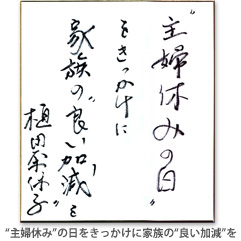 “主婦休みの日”
をきっかけに
家族の“良い加減”を
植田奈保子
“主婦休みの日”の日をきっかけに家族の“良い加減”を